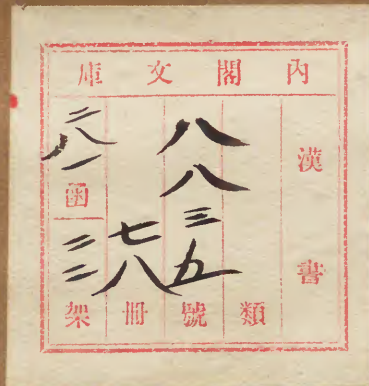 內閣文庫
漢書
類
八八三五
號
七八
冊
三八一
函
三二
架